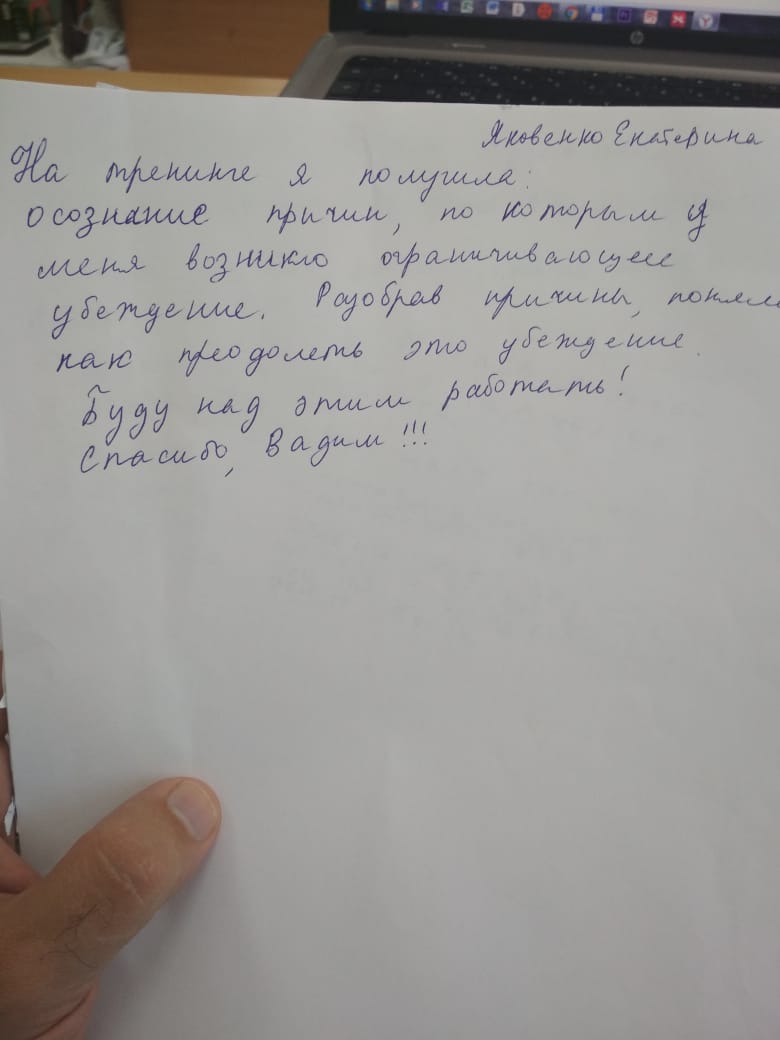 Яковенко Екатерина
На тренинге я получила:
осознание причин, по которым у
меня возникло ограничивающее
убеждение. Разобрав причины, поняла
как преодолеть это убеждение.
Буду над этим работать!
Спасибо, Вадим!!!
hp